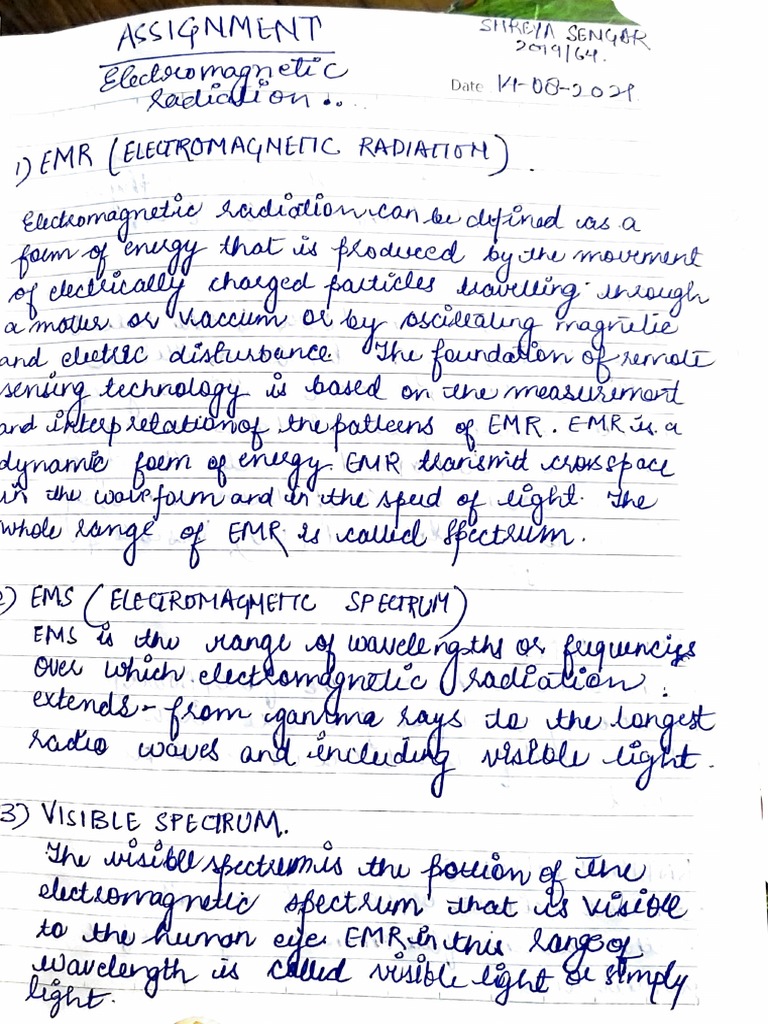 ASSIGNMENT
Electromagnetic
radiation..
SHREYA SENGAR
2019/64.
Date 14-08-2021
1) EMR (ELECTROMAGNETIC RADIATION).
Electromagnetic radiation can be defined as a
form of energy that is produced by the movement
of electrically charged particles travelling through
a matter or vaccum or by oscillating magnetic
and electric disturbance. The foundation of remote
sensing technology is based on the measurement
and interpretation of the patterns of EMR. EMR is a
dynamic form of energy. EMR transmit cross space
in the wave form and in the speed of light. The
whole range of EMR is called spectrum.
2) EMS (ELECTROMAGNETIC SPECTRUM)
EMS is the range of wavelengths or frequencies
over which electromagnetic radiation
extends- from gamma rays to the longest
radio waves and including visible light.
3) VISIBLE SPECTRUM.
The visible spectrum is the portion of the
electromagnetic spectrum that is visible
to the human eye. EMR in this range of
wavelength is called visible light or simply
light.